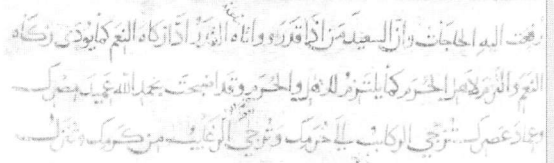 رفعت اليه الحاجات وان السعيد من اذا قدر وواتاه القدر ادا زكاه النعم كما يودى زكاه
النعم والتزم لاهل الحرم كما يلتزم للاهل والحرم وقد اصبحت بحمد الله عميد مصرك
وعماد عصرك تزجى الركايب الى حرمك وترجى الرغايب من كرمك وتنزل